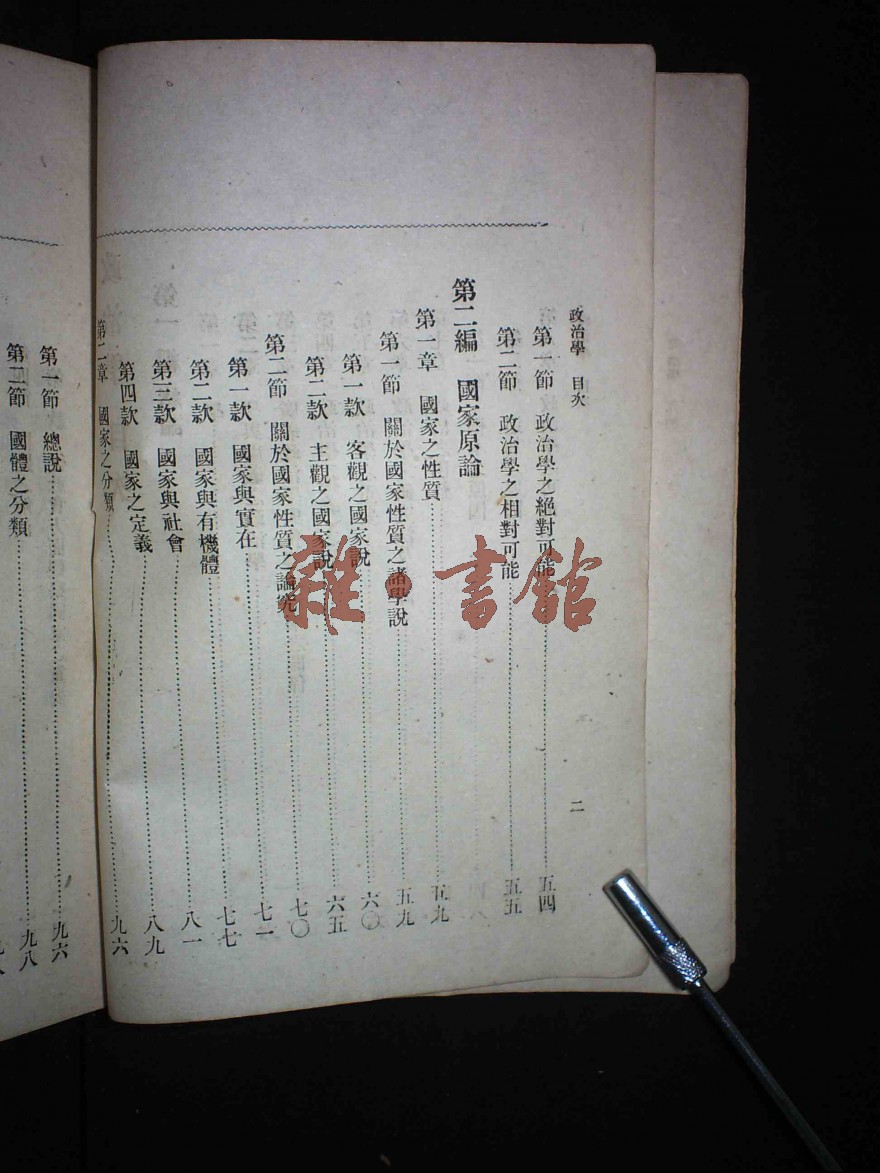 政治學　目次
二
第一節　政治學之絕對可能……五四
第二節　政治學之相對可能……五五
第二編　國家原論
第一章　國家之性質……五九
第一節　關於國家性質之諸學說……五九
第一款　客觀之國家說……六〇
第二款　主觀之國家說……六五
第二節　關於國家性質之論究……七〇
第一款　國家與實在……七一
第二款　國家與有機體……七七
第三款　國家與社會……八一
第四款　國家之定義……八九
第二章　國家之分類……九六
第一節　總說……九六
第二節　國體之分類……九八
雜·書館